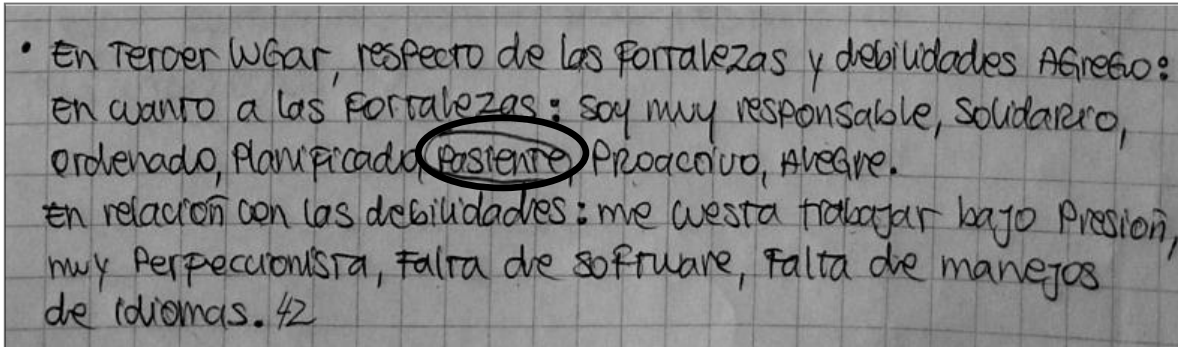 • En Tercer lugar, respecto de las Fortalezas y debilidades Agrego:
en cuanto a las Fortalezas: soy muy responsable, solidario,
ordenado, Planificado, Pasiente, Proactivo, Alegre.
En relación con las debilidades: me cuesta trabajar bajo Presión,
muy Perfeccionista, Falta de software, Falta de manejos
de idiomas. 42